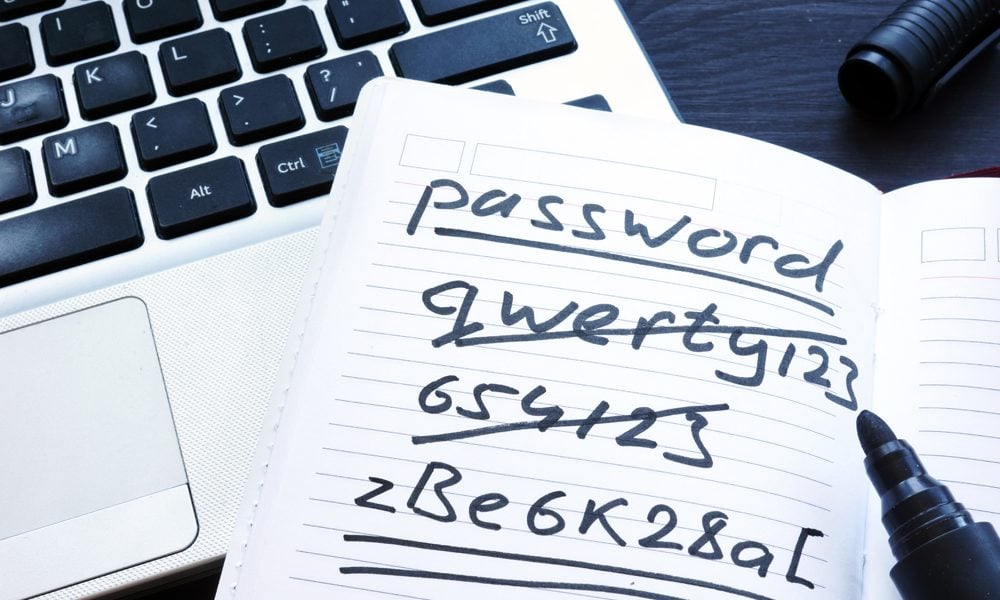 I
: ;
" '
Shift
K
L
? /
J
> .
M
< ,
Ctrl
Alt
password
qwerty123
654123
zBe6K28a[